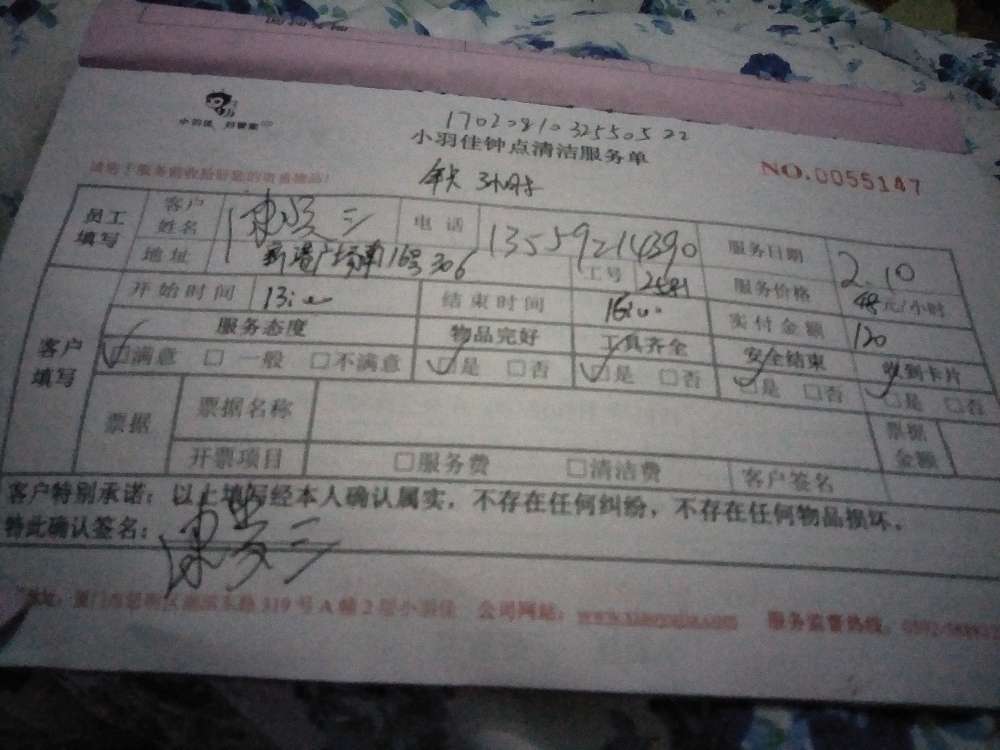 小羽佳 好管家
17020810325505 22
小羽佳钟点清洁服务单
NO.0055147
3小时
员工填写 客户姓名 电话 13559214390 服务日期 2.10
地址 新港广场南16号306 工号 2581 服务价格 48元/小时
客户填写 开始时间 13:00 结束时间 16:00 实付金额 120
服务态度 物品完好 工具齐全 安全结束 收到卡片
□满意 □一般 □不满意 □是 □否 □是 □否 □是 □否 □是 □否
票据 票据名称 票据金额
开票项目 □服务费 □清洁费 客户签名
客户特别承诺：以上填写经本人确认属实，不存在任何纠纷，不存在任何物品损坏。
特此确认签名：
319号A幢2层小羽佳 公司网站： 服务监督热线：